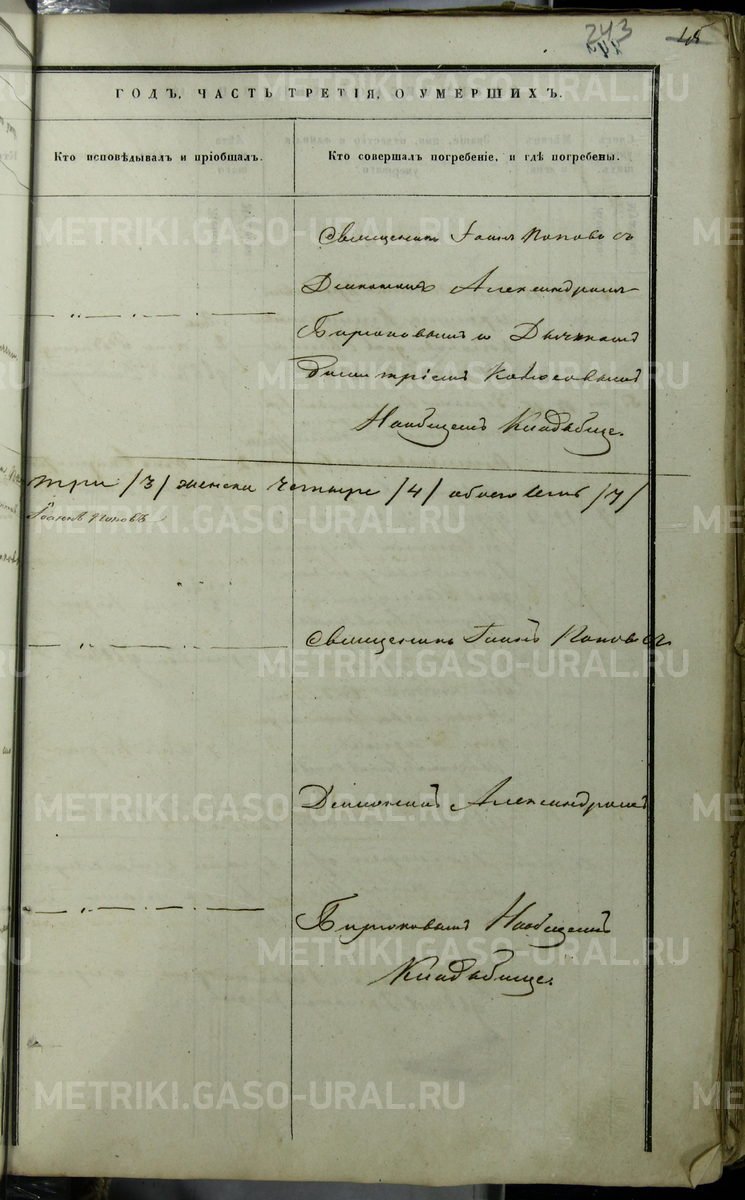 243
45
ГОДЪ, ЧАСТЬ ТРЕТІЯ, О УМЕРШИХЪ.
Кто исповѣдывалъ и пріобщалъ.
Кто совершалъ погребеніе, и гдѣ погребены.
Священникъ Іоаннъ Поповъ съ
Діакономъ Александромъ
Бирюковымъ и Дьячкомъ
Димитріемъ Колосовымъ
На общемъ Кладбище.
три /3/ женска четыре /4/ обоего семь /7/
Іоаннъ Поповъ
Священникъ Іоаннъ Поповъ съ
Діакономъ Александромъ
Бирюковымъ На общемъ
Кладбище.
METRIKI.GASO-URAL.RU